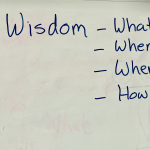 Wisdom - What
- Wher
- Wher
- How